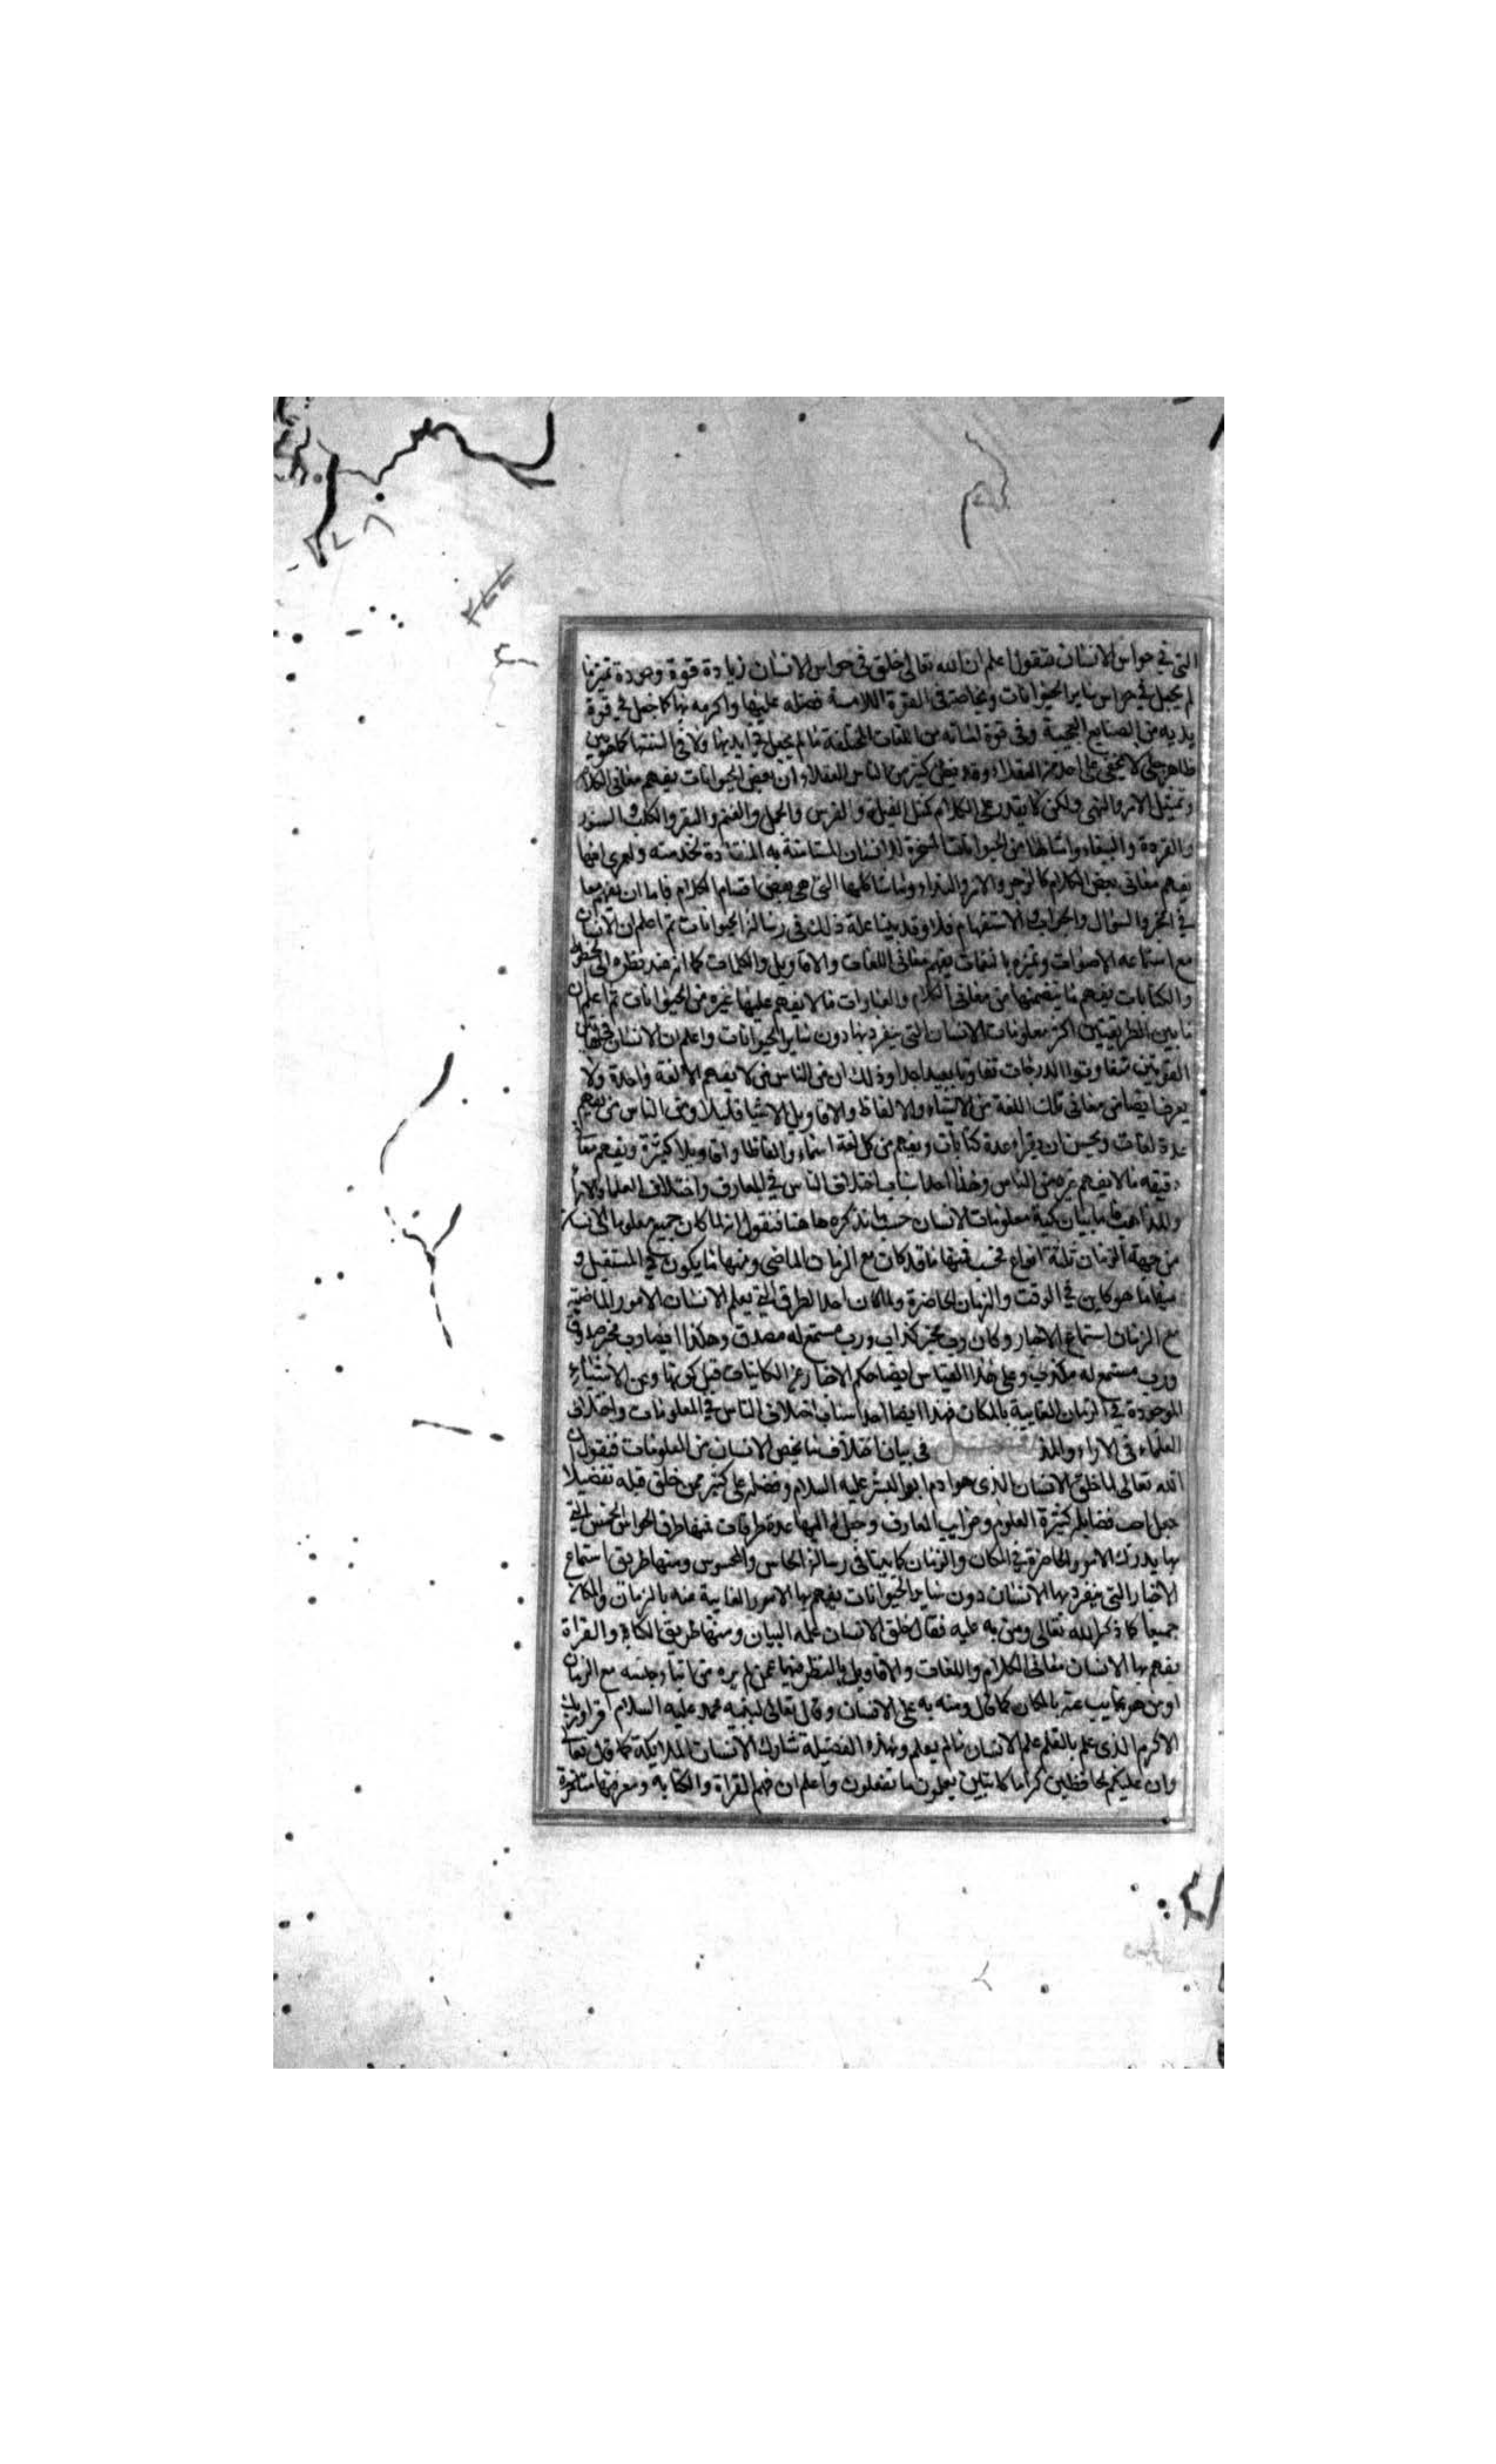 التى في حواس الانسان فنقول اعلم ان الله تعالى خلق فى حواس الانسان زيادة قوة وجودة تميزنا
لم يجعل في حواس ساير الحيوانات وبخاصة فى القوة اللامسة فضله عليها واكرمه بها كما جعل في قوة
يديه من الصنايع العجيبة وفى قوة لسانه من اللغات المختلفة ما لم يجعل في ايديها ولا في السنتها كما هو بين
ظاهر جلى لا يخفى على احد من العقلاء وقد يظن كثير من الناس العقلاء ان بعض الحيوانات يفهم معانى الكلام
وتمثيل الامر والنهى ولكن لا يقدر على الكلام كمثل الفيلة والفرس والجمل والغنم والبقر والكلب والسنور
والقردة والببغاء وامثالها من الحيوانات المسخرة للانسان المستانسة به المنقادة لخدمته ولعمرى انها
يفهم معانى بعض الكلام كالزجر والامر والنداء وما شاكلها التى هى بعض اقسام الكلام فاما ان يفهم معا
في الخبر والسؤال والجواب والاستفهام فلا وقد بينا علة ذلك فى رسالة الحيوانات ثم اعلم ان الانسان
مع استماعه الاصوات وتميزه بالنغمات يفهم معانى اللغات والاقاويل والكلمات كما انه عند نظره الى الخطوط
والكتابات يفهم ما يتضمنها من معانى الكلام والعبارات ما لا يفهم عليها غيره من الحيوانات ثم اعلم ان
ما بين الطريقتين اكثر معلومات الانسان التى ينفرد بها دون ساير الحيوانات واعلم ان الانسان في هاتين
القوتين متفاوتوا الدرجات تفاوتا بعيدا جدا وذلك ان من الناس من لا يفهم الا لغة واحدة ولا
يعرف ايضا من معانى تلك اللغة من الاشياء والالفاظ والاقاويل الا شيا قليلا ومن الناس من يفهم
عدة لغات ويحسن ان يقراء عدة كتابات ويفهم من كل لغة اسماء والفاظا واقاويلا كثيرة ويفهم معا
دقيقه ما لا يفهم غيره من الناس وهذا احد اسباب اختلاف الناس في المعارف واختلاف العلماء والاراء
والمذاهب فاما بيان كمية معلومات الانسان حسب ما نذكره هاهنا فنقول انه لما كان جميع معلومات الانسان
من جهة الزمان ثلثة انواع فحسب فمنها ما قد كان مع الزمان الماضى ومنها ما يكون في المستقبل و
منها ما هو كاين في الوقت والزمان الحاضرة ولما كان احد الطرق التى يعلم الانسان الامور الماضية
مع الزمان استماع الاخبار وكان رب مخبر كذاب ورب مستمع له مصدق وهكذا ايضا رب مخبر صدوق
ورب مستمع له مكذب وعلى هذا القياس ايضا حكم الاخبار عن الكاينات قبل كونها وعن الاشياء
الموجودة في الزمان الغايبة بالمكان فهذا ايضا احد اسباب اختلاف الناس في المعلومات واختلاف
العلماء فى الاراء والمذ فى بيان اختلاف ما يخص الانسان من المعلومات فنقول ان
الله تعالى لما خلق الانسان الذى هو ادم ابو البشر عليه السلام وفضله على كثير ممن خلق قبله تفضيلا
جعل احد فضايله كثيرة العلوم وغرايب المعارف وجعل له اليها عدة طرقات فمنها طرق الحواس الخمس التى
بها يدرك الامور الحاضرة في المكان والزمان كما بينا فى رسالة الحاس والمحسوس ومنها طريق استماع
الاخبار التى ينفرد بها الانسان دون ساير الحيوانات يفهم بها الامور الغايبة عنه بالزمان والمكان
جميعا كما ذكر الله تعالى ومن به عليه فقال خلق الانسان علمه البيان ومنها طريق الكتابة والقراة
يفهم بها الانسان معانى الكلام واللغات والاقاويل بالنظر فيها عمن لم يره من ابنا جنسه مع الزمان
او من هو غايب عنه بالمكان كما قال ومنه به على الانسان وقال تعالى لنبيه محمد عليه السلام اقرا وربك
الاكرم الذى علم بالقلم علم الانسان ما لم يعلم وبهذه الفضيلة شارك الانسان الملايكة كما قال تعا
وان عليكم لحافظين كراما كاتبين يعلمون ما تفعلون واعلم ان فهم القراة والكتابه ومعرفتها متاخرة